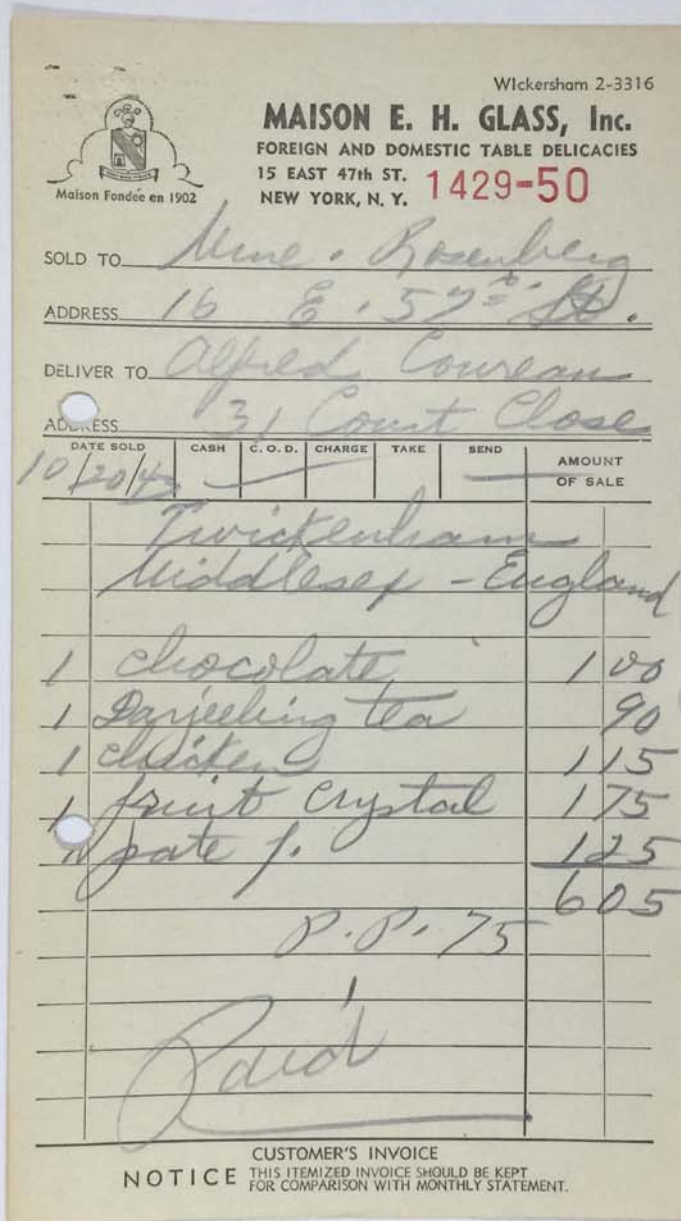 WIckersham 2-3316
MAISON E. H. GLASS, Inc.
FOREIGN AND DOMESTIC TABLE DELICACIES
15 EAST 47th ST.
NEW YORK, N. Y.
1429-50
Maison Fondée en 1902
SOLD TO Mme. Rosenberg
ADDRESS 16 E. 57th St.
DELIVER TO Alfred
ADDRESS 31 Court Close
DATE SOLD CASH C.O.D. CHARGE TAKE SEND AMOUNT OF SALE
10/20/43
Twickenham
Middlesex - England
1 chocolate 1 00
1 Darjeeling tea 90
1 chicken 1 15
1 fruit crystal 1 75
pate f. 1 25
6 05
P.P. 75
Paid
CUSTOMER'S INVOICE
NOTICE THIS ITEMIZED INVOICE SHOULD BE KEPT
FOR COMPARISON WITH MONTHLY STATEMENT.